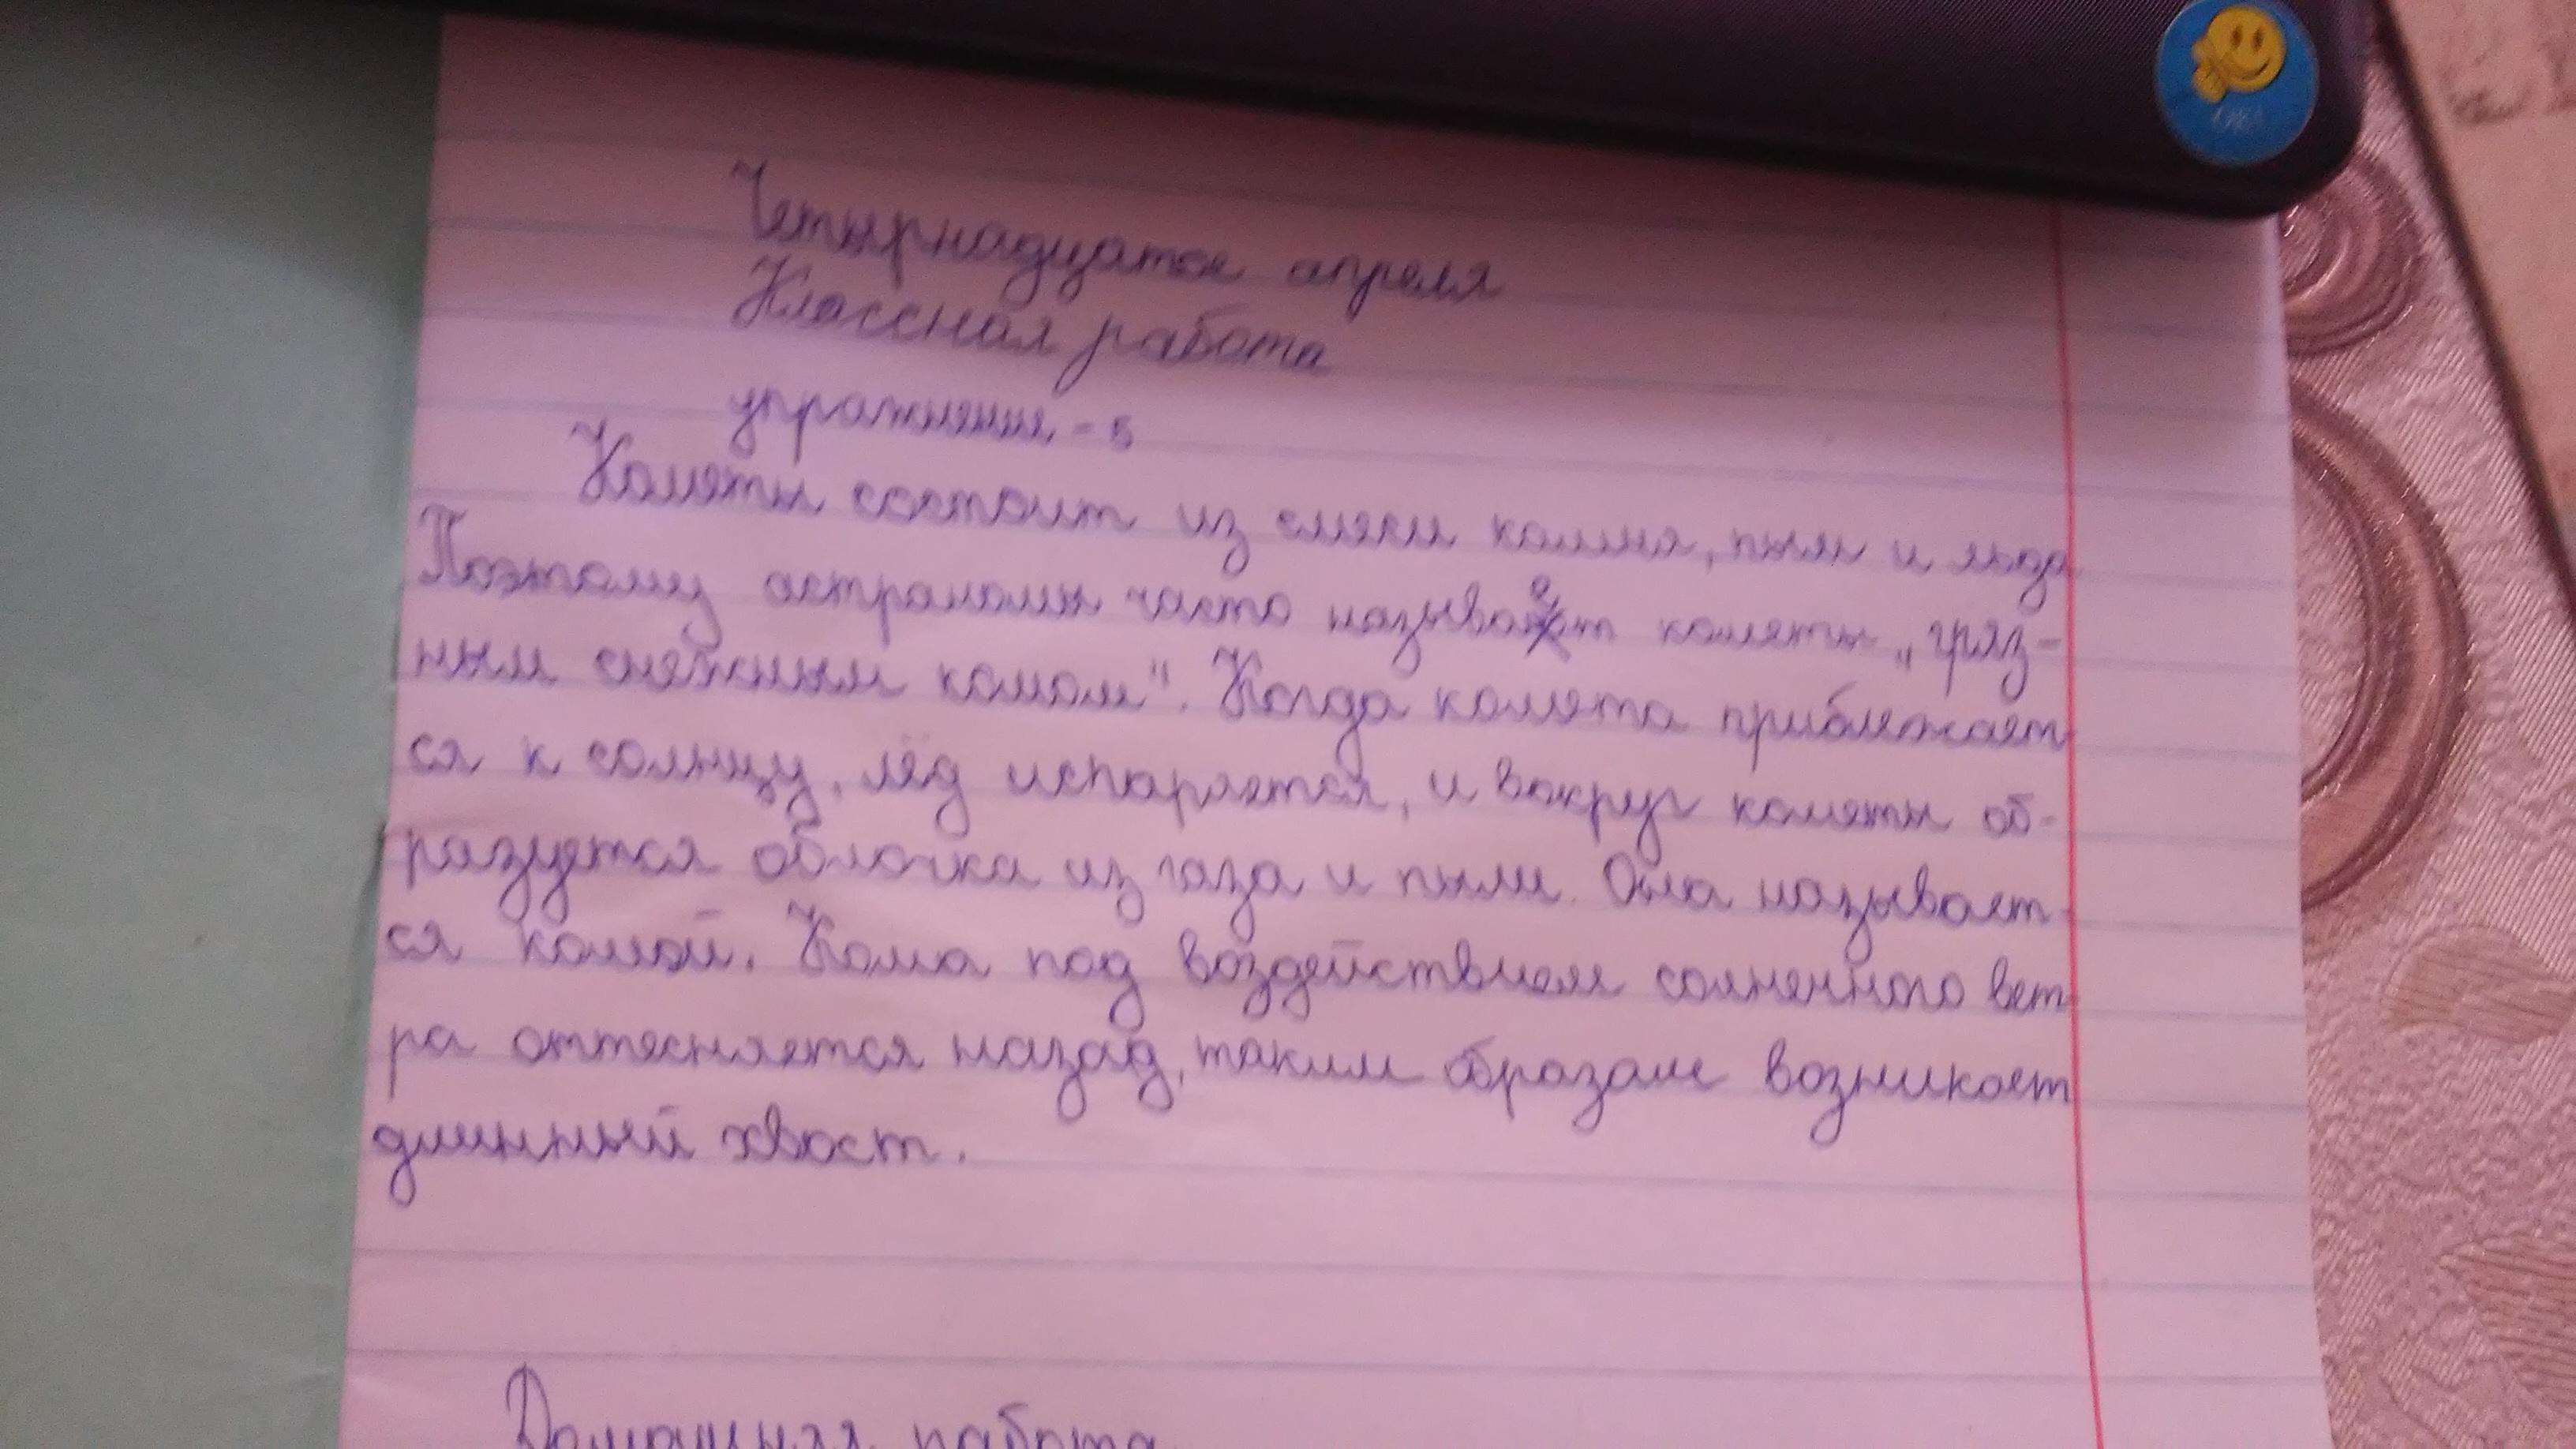 Четырнадцатое апреля
Классная работа
упражнение - 5
Кометы состоит из смеси камня, пыли и льда
Поэтому астрономы часто называет кометы „гряз-
ным снежным комом". Когда комета приближает
ся к солнцу, лёд испаряется, и вокруг кометы об-
разуется оболочка из газа и пыли. Она называет-
ся комой. Кома под воздействием солнечного вет-
ра оттесняется назад, таким образом возникает
длинный хвост.
Домашняя работа